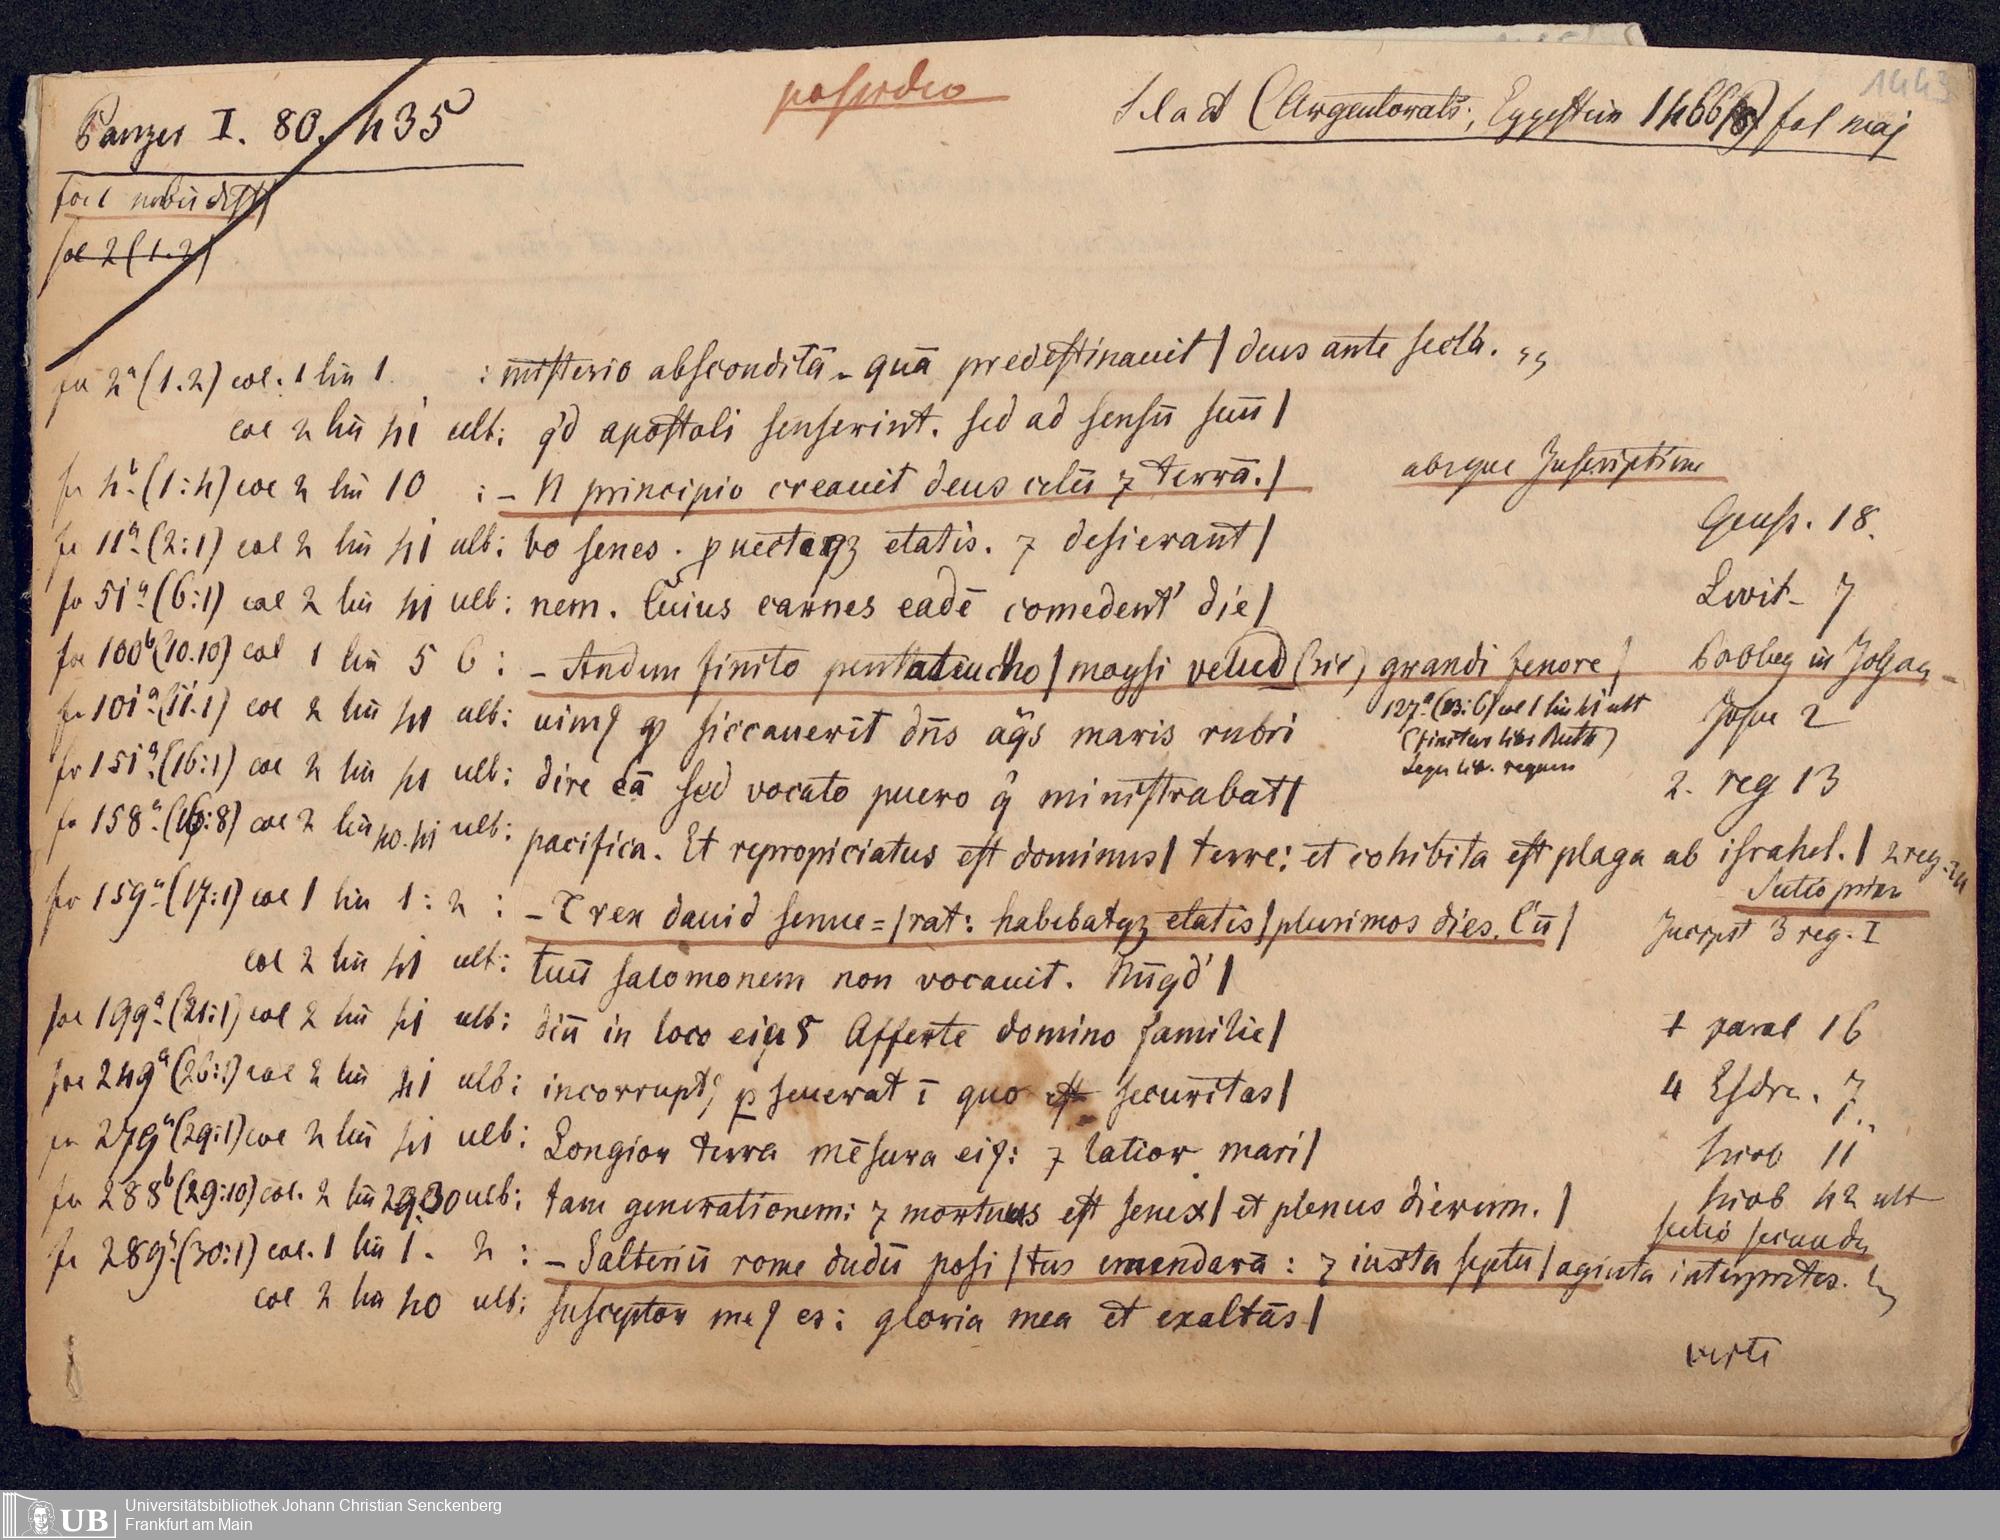 1443
Panzer I. 80. 435
posordeo
s l a et d (Argentorati; Eggestein 1466(8) fol maj
fol 1
fol 2 (1.2)
fo 2a (1.2) col. 1 lin 1. : misterio abscondita̅ - qua̅ predestinauit | deus ante secla.
col 2 lin 41 ult: q'd apostoli senserint. sed ad sensu̅ suu̅ |
fo 4b (1:4) col 2 lin 10 : - N principio creauit deus celu̅ ⁊ terra̅. | absque Inscriptione
fo 11a (2:1) col 2 lin 41 ult: bo senes. ꝓuecteqꝫ etatis. ⁊ desierant | Genes. 18.
fo 51a (6:1) col 2 lin 41 ult: nem. Cuius carnes eade̅ comedent' die | Levit - 7
fo 100b (10.10) col 1 lin 5 6 : - Andem finito pentateucho | moysi velud (sic) grandi fenore | Prolog in Josuam
fo 101a (11.1) col 2 lin 41 ult: uimꝰ ꝙ siccauerit dn̅s aq̅s maris rubri Josue 2
127a (13:6) col 1 lin 41 ult
(finitus libr Ruth)
Sequ lib. regum
fo 151a (16:1) col 2 lin 41 ult: dire ea̅ sed vocato puero q̅ ministrabat | 2. reg 13
fo 158a (16:8) col 2 lin 40.41 ult: pacifica. Et repropiciatus est dominus | terre: et cohibita est plaga ab israhel. | 2 reg. 24
Sectio prior
fo 159a (17:1) col 1 lin 1: 2 : - T rex dauid senue= | rat: habebatqꝫ etatis | plurimos dies. Cu̅ | Incipit 3 reg. I
col 2 lin 41 ult: tuu̅ salomonem non vocauit. Nu̅qd' |
fol 199a (21:1) col 2 lin 41 ult: diu̅ in loco eius Afferte domino familie | 1 paral 16
fol 249a (26:1) col 2 lin 41 ult: incorruptꝰ ꝑseuerat i̅ quo est securitas | 4 Esdra. 7
fo 279a (29:1) col 2 lin 41 ult: Longior terra me̅sura eiꝰ: ⁊ latior mari | hiob 11
fo 288b (29:10) col. 2 lin 29.30 ult: tam generationem: ⁊ mortuus est senex | et plenus dierum. | hiob 42 ult
Sectio secunda
fo 289a (30:1) col. 1 lin 1. 2 : - Salteriu̅ rome dudu̅ posi | tus emendara̅: ⁊ iuxta septu | aginta interpretes.
col 2 lin 40 ult: susceptor meꝰ es: gloria mea et exalta̅s |
verte
UB
Universitätsbibliothek Johann Christian Senckenberg
Frankfurt am Main